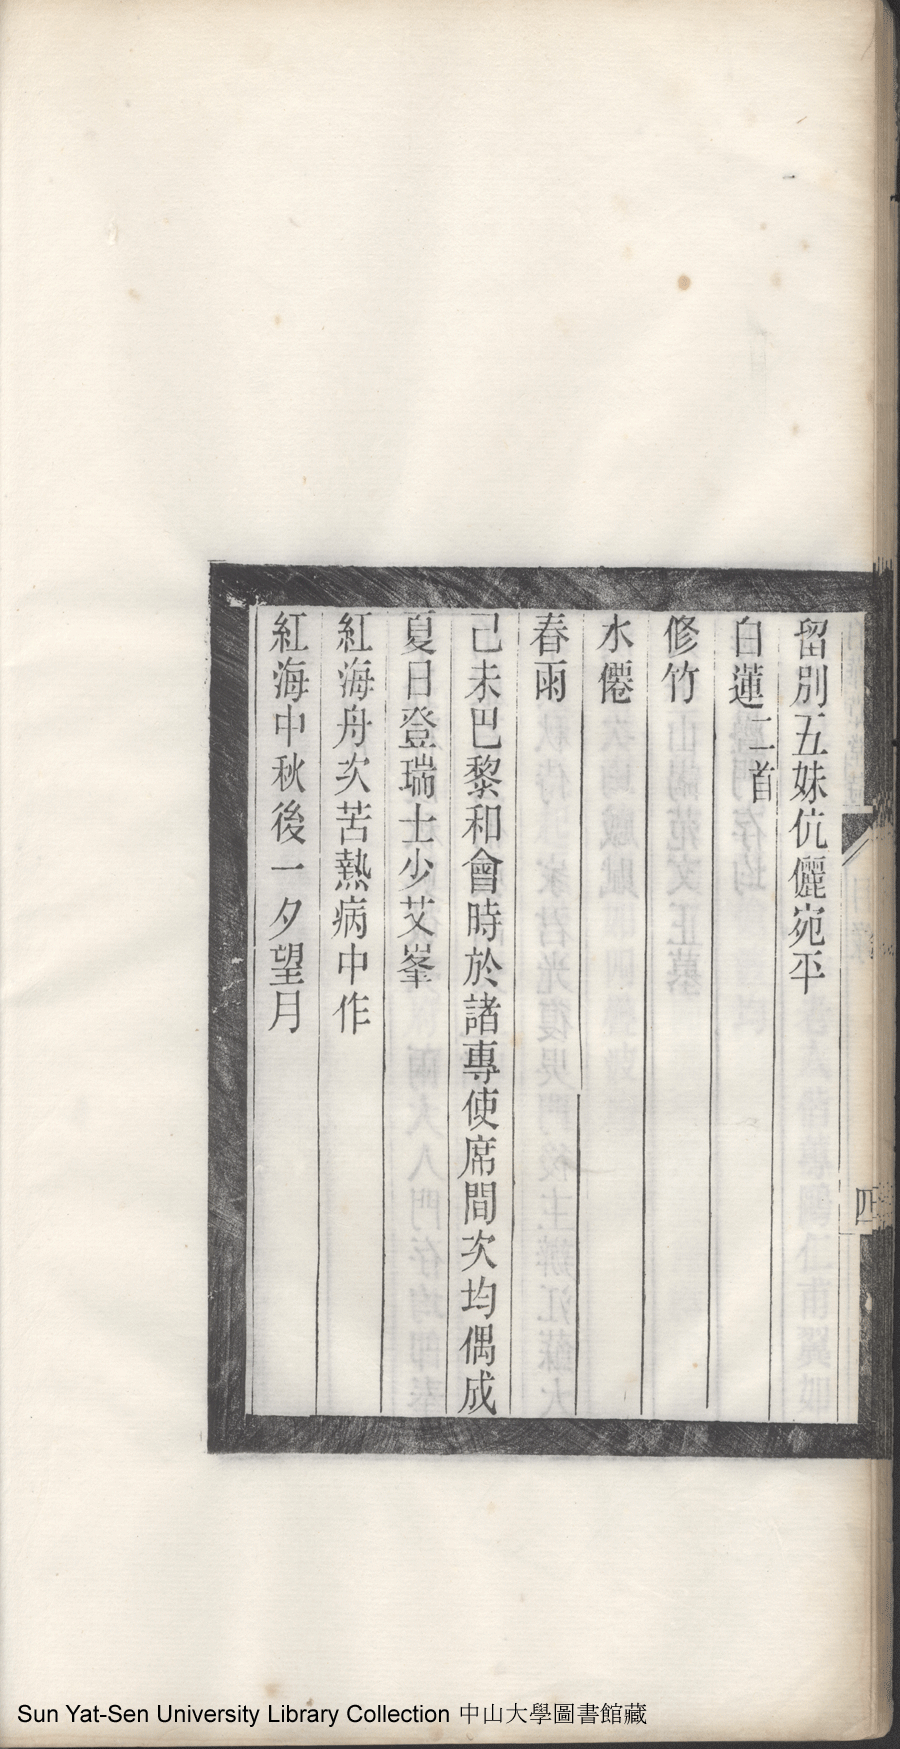 留別五妹伉儷宛平
白蓮二首
修竹
水僊
春雨
己未巴黎和會時於諸專使席間次均偶成
夏日登瑞士少艾峯
紅海舟次苦熱病中作
紅海中秋後一夕望月
四
Sun Yat-Sen University Library Collection 中山大學圖書館藏